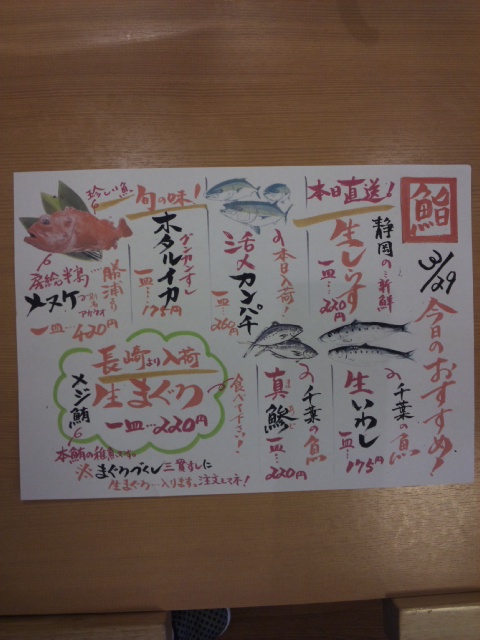 鮨
3/29
今日のおすすめ!
本日直送!
静岡の新鮮
生しらす
一皿…220円
本日入荷!
活〆カンパチ
一皿…260円
旬の味!
グンカンすし
ホタルイカ
一皿…175円
珍しい魚
房総半島
勝浦より
メヌケ
別名アカウオ
一皿…420円
千葉の魚
生いわし
一皿…175円
千葉の魚
真鯵
一皿…220円
長崎より入荷
生まぐろ
一皿…220円
食べて下さい!
メジ鮪
本鮪の稚魚です。
まぐろづくし三貫すしに
生まぐろ…入ります。注文してネ!